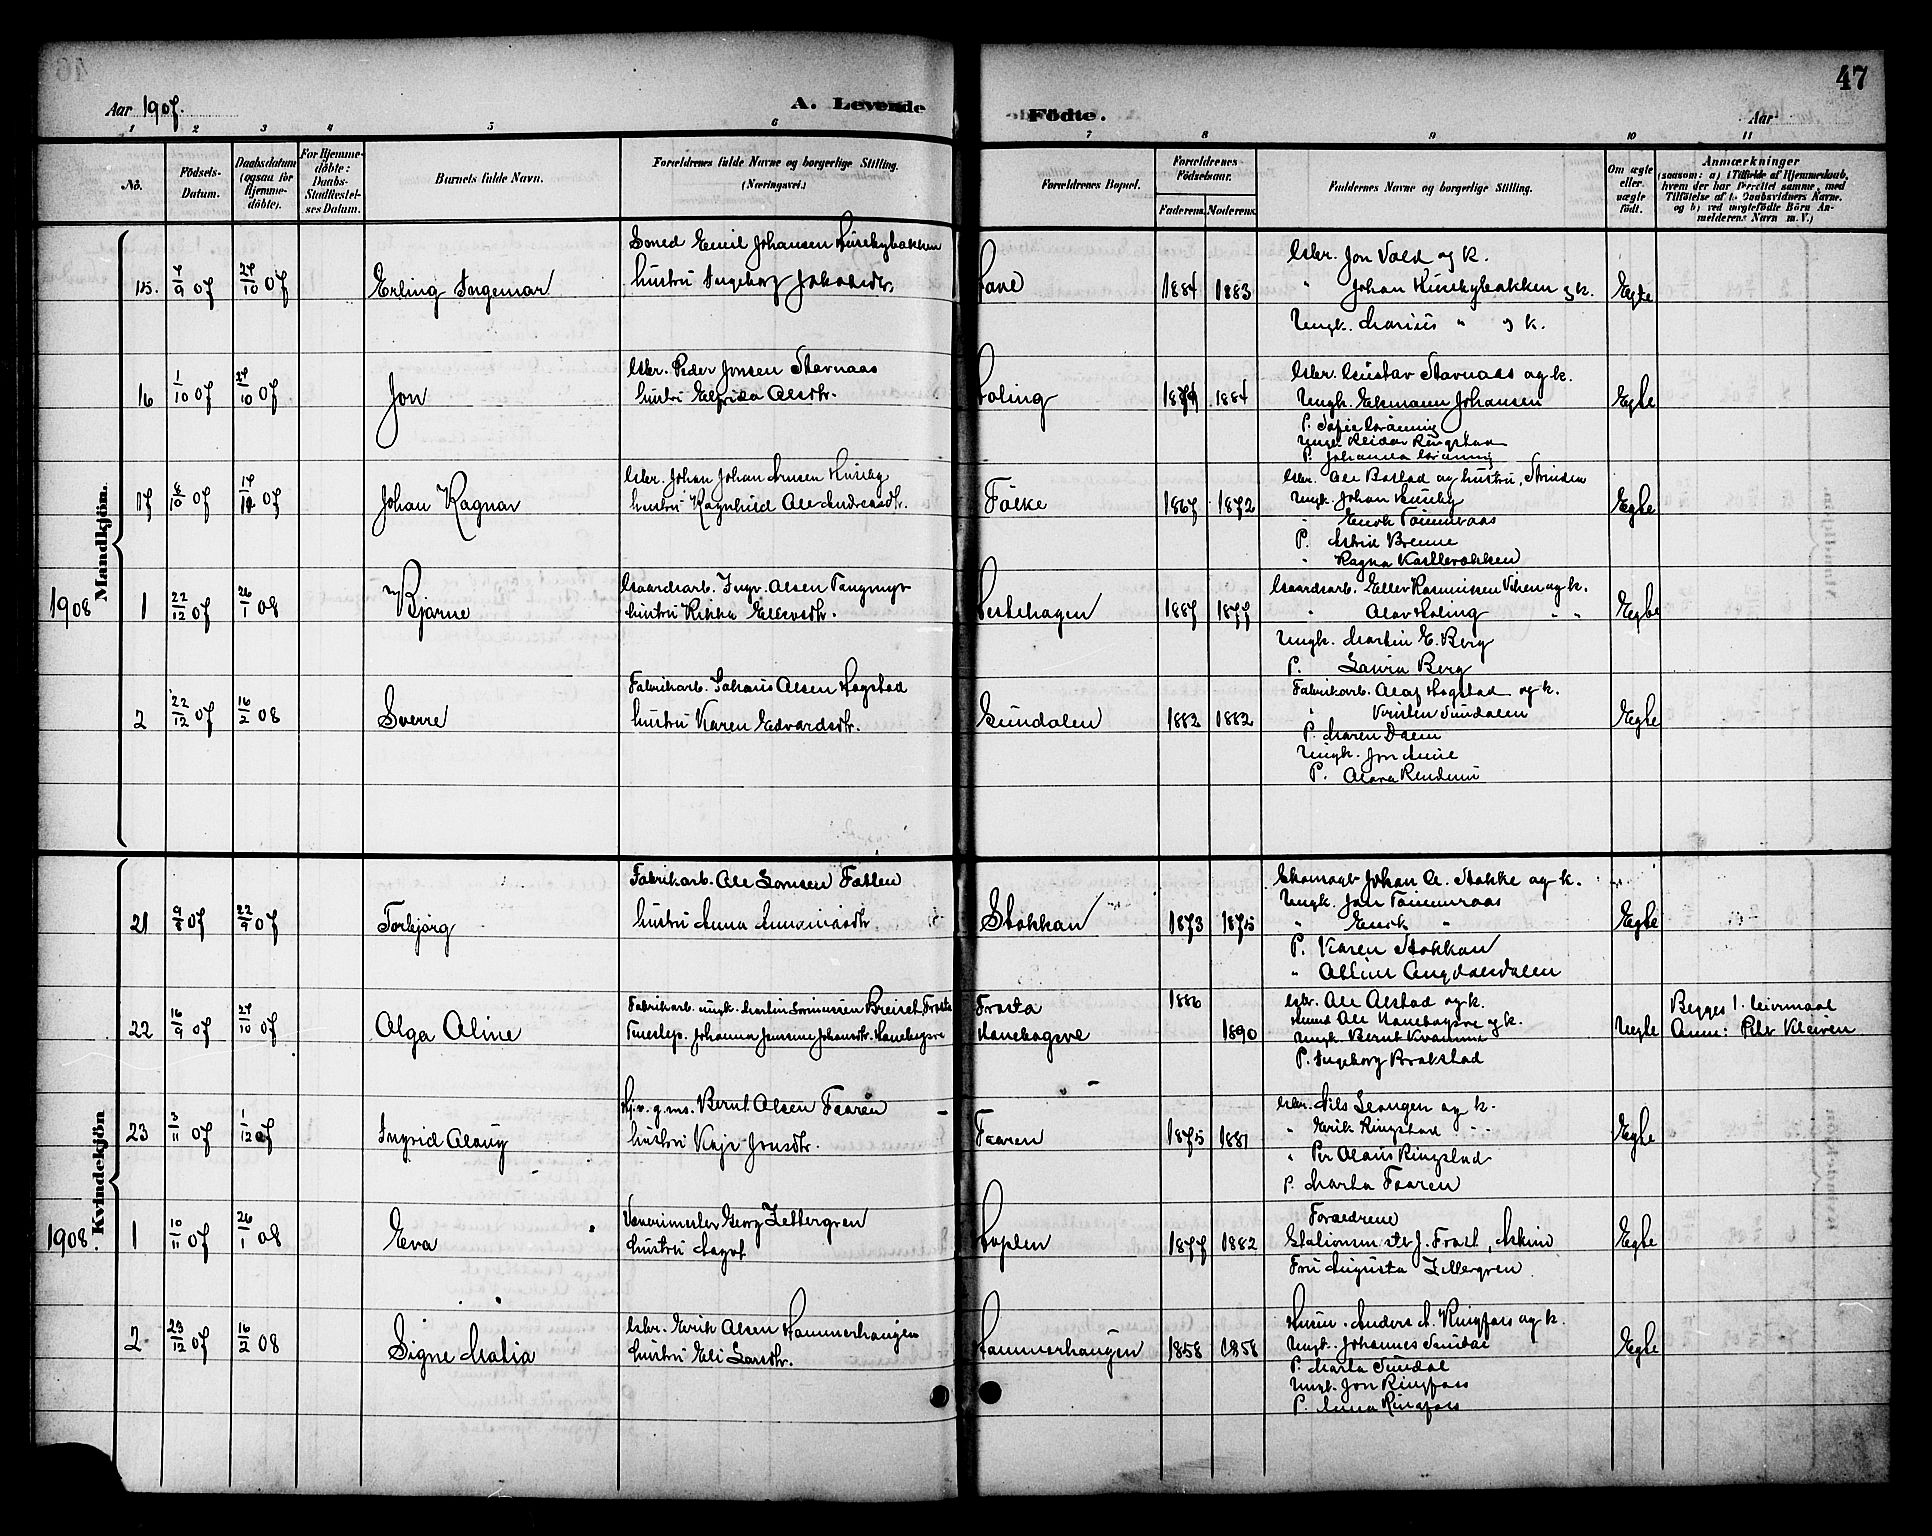 Aar 1907. A. Levende Födte. Aar 47
1 2 3 4 5 6 7 8 9 10 11
No.
Födsels-Datum.
Daabsdatum (ogsaa for Hjemme-döbte).
For Hjemme-döbte: Daabs-Stadfæstel-ses Datum.
Barnets fulde Navn.
Forældrenes fulde Navne og borgerlige Stilling. (Næringsvei.)
Forældrenes Bopæl.
Forældrenes Födselsaar.
Faderens. Moderens.
Faddernes Navne og borgerlige Stilling.
Om ægte eller uægte födt.
Anmærkninger
(saasom: a) i Tilfælde af Hjemmedaab, hvem der har forrettet samme, med Tilföielse af to Daabsvidners Navne. og b) ved uægtefödte Börn An-melderens Navn m. V.)
Mandkjön.
15. 7/9 07 27/10 07 Erling Ingemar
Smed Emil Johansen Husebybakken
hustru Ingeborg Jakobsdtr.
1884 1883
Gbr. Jon Vold og k.
" Johan Husebybakken og k.
Ungk. Marius " og k.
Egte
16 1/10 07 27/10 07 Jon
Gbr. Peder Jonsen Stavnaas
hustru Elfrida Olsdtr.
1884
Gbr. Gustav Stavnaas og k.
Ungk. Ekmann Johansen
P. Sofie Grönning
Ungk. Reidar Ringstad
P. Johanna Grönning
Egte
17 8/10 07 17/12 07 Johan Ragnar
Gbr. Johan Johan Arnsen Huseby
hustru Ragnhild Ole Andreasdtr.
1867 1872
Gbr. Ole Bostad og hustru, Strinden
Ungk. Johan Huseby
" Enok Tömmraas
P. Astrid Brenne
" Ragna
Egte
1908
1 22/12 07 26/1 08 Bjarne
Gaardsarb. Ingv. Olsen Tangmyr
hustru Rikka Ellevsdtr.
Vestehagen
1887 1877
Gaardsarb. Ellev Rasmussen Viken og k.
" Olav Holing " "
Ungk. Martin E. Berg
P. Laura Berg
Egte
2 22/12 07 16/2 08 Sverre
Fabrikarb. Johans Olsen Hogstad
hustru Karen Edvardsdtr.
Sundalen
1882 1882
Fabrikarb. Olaf Hogstad og k.
" Kristen Sundalen
P. Maren Daem
Ungk. Jon Aune
P. Olava
Egte
Kvindekjön
21 22/9 07 Torbjörg
Fabrikarb. Ole Larnsen Fatlen
hustru Anna
Stokkan
1873 1875
Johan O. Stokke og k.
Ungk. Jon Tömmraas
" Enok "
P. Karen Stokkan
" Olline Ongdalsdalen
Egte
22 16/9 07 27/10 07 Olga Oline
Fabrikarb. ungk. Martin Breivet Frosta
Johanna Jensine Johansdtr. Hanebogsve
Frosta
Hanebogsve
1886
1890
Gbr. Ole Olstad og k.
Ole Hanebogsve og k.
Ungk. Bernt Kvamme
P. Ingeborg Brakstad
Uegte
Begges 1. Leiermaal
Anm: Petr Kleiven
23 3/11 07 1/12 07 Ingrid Olaug
Hj.v. g.m. Bernt Olsen Faaren
hustru Kaja Jonsdtr.
Faaren
1875 1881
Gbr. Nils Leangen og k.
" Erik Ringstad " "
" Per Olaus Ringstad
P. Marta Faaren
Egte
1908.
1 10/11 07 26/1 08 Eva
Georg Zettergren
Hustru Dagot
Hoplen
1877 1882
Forældrene
Stationsmstr J. Frost, Askim
Fru Augusta Zettergren
Egte
2 25/12 07 16/2 08 Signe Malia
Gbr. Erik Olsen Hammerhaugen
hustru Eli Larsdtr.
Hammerhaugen
1858 1858
Husm. Anders A. Ringfoss og k.
Ungk. Johannes Sundal
P. Marta Sundal
Ungk. Jon Ringfoss
P. Anna Ringfoss
Egte